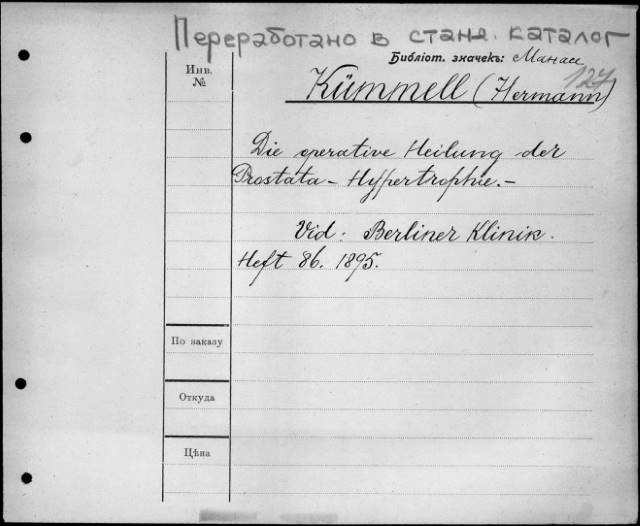 Переработано в станд. каталог
Библіот. значекъ: Манас
127
Инв.
№
Kümmell (Hermann)
Die operative Heilung der
Prostata-Hypertrophie.-
Vid: Berliner Klinik.
Heft 86. 1895.
По заказу
Откуда
Цѣна